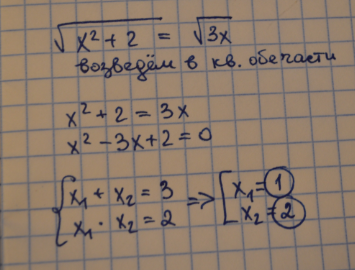 √(x² + 2) = √(3x)
возведём в кв. обе части
x² + 2 = 3x
x² − 3x + 2 = 0
{ x₁ + x₂ = 3 => [ x₁ = 1
x₁ · x₂ = 2 x₂ = 2